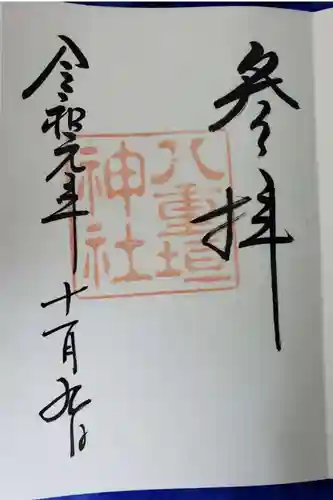 参拝
八重垣
神社
令和元年十一月九日